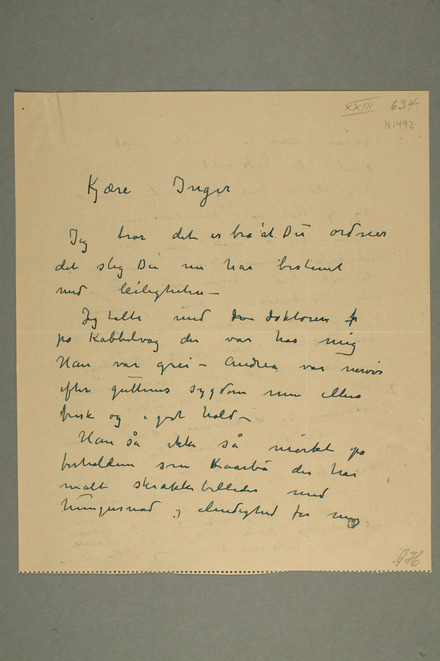 XXIII 634
N1492
Kjære Inger
Jeg tror det er bra at Du ordner
det slig Du nu har bestemt
med leiligheten –
Jeg talte med doktoren
på Kabbelvåg der var hos mig
Han var grei – Andrea var nervøs
efter guttens sygdom men ellers
frisk og i god hold –
Han så ikke så mørkt på
forholdene som Kaarbø der har
malt skrækkebilleder med
hungersnød og elendighed for mig